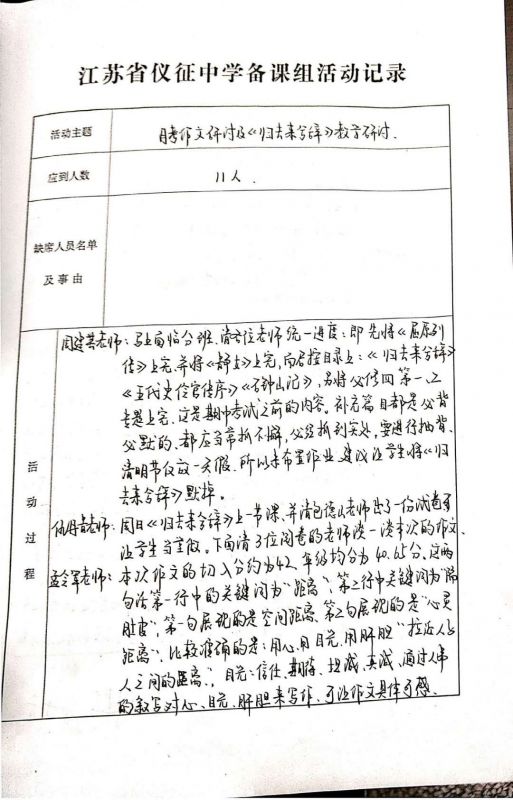 江苏省仪征中学备课组活动记录
活动主题
月考作文研讨及《归去来兮辞》教学研讨.
应到人数
11人.
缺席人员名单
及事由
活动过程
老师:马上面临分班,请各位老师统一进度:即先将《屈原列
传》上完,并将《静女》上完,而后按目录上:《归去来兮辞》
《五代史伶官传序》《石钟山记》,另将必修四第一、二
专题上完,这是期中考试之前的内容。补充篇目都是必背
必默的,都应当常抓不懈,必须抓到实处,要进行抽背,
清明节仅放一天假,所以未布置作业,建议让学生将《归
去来兮辞》默掉。
老师:周日《归去来兮辞》上一节课,并请包德山老师出了一份试卷可
让学生当堂做。下面请3位阅卷的老师谈一谈本次的作文.
孟令军老师:本次作文的切入分约为42,年级均分为40.65分,这两
句话第一行中的关键词为"距离",第二行中关键词为"隔
肚皮",第一句展现的是空间距离,第2句展现的是"心灵
距离",比较准确的是:用心、用目光、用肝胆"拉近人与
人之间的距离",目光:信任、期待、坦诚、真诚,通过人事
的叙写对心、目光、肝胆来写作,可让作文具体可感.